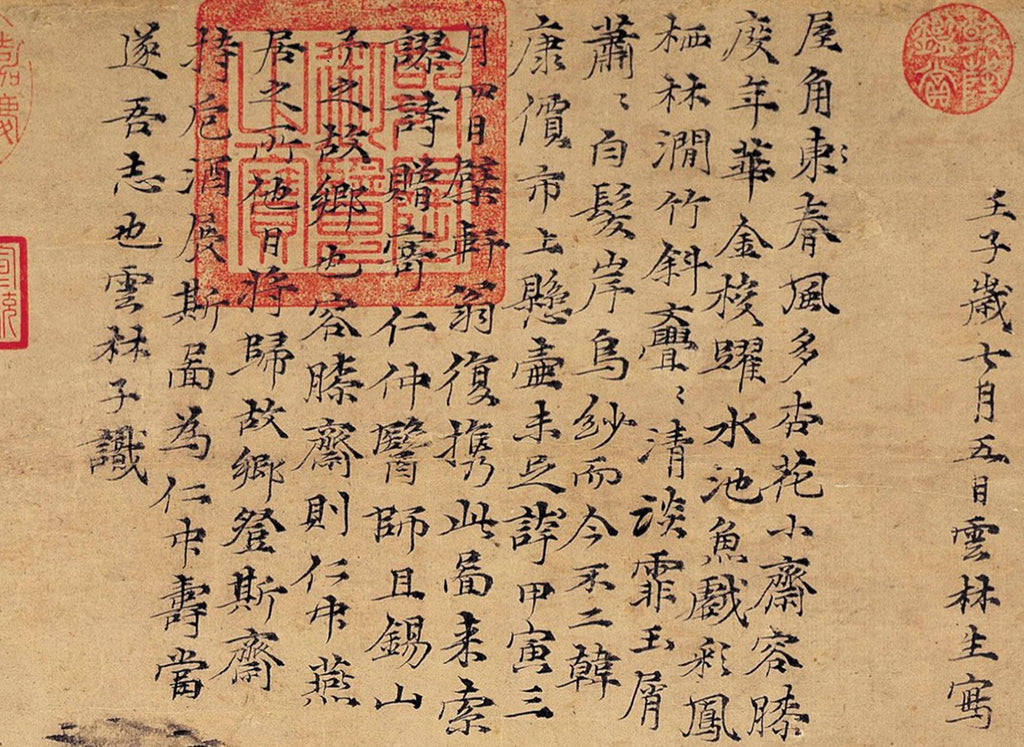 壬子歲七月五日雲林生寫
屋角東春風多杏花小齋容膝
度年華金梭躍水池魚戲彩鳳
栖林澗竹斜亹〻清談霏玉屑
蕭〻白髮岸烏紗而今不二韓
康價市上懸壺未足誇甲寅三
月四日檗軒翁復携此圖来索
謬詩贈寄仁仲醫師且錫山
予之故鄉也容膝齋則仁中燕
居之所他日將歸故鄉登斯齋
持卮酒展斯圖為仁中壽當
遂吾志也雲林子識
嘉慶